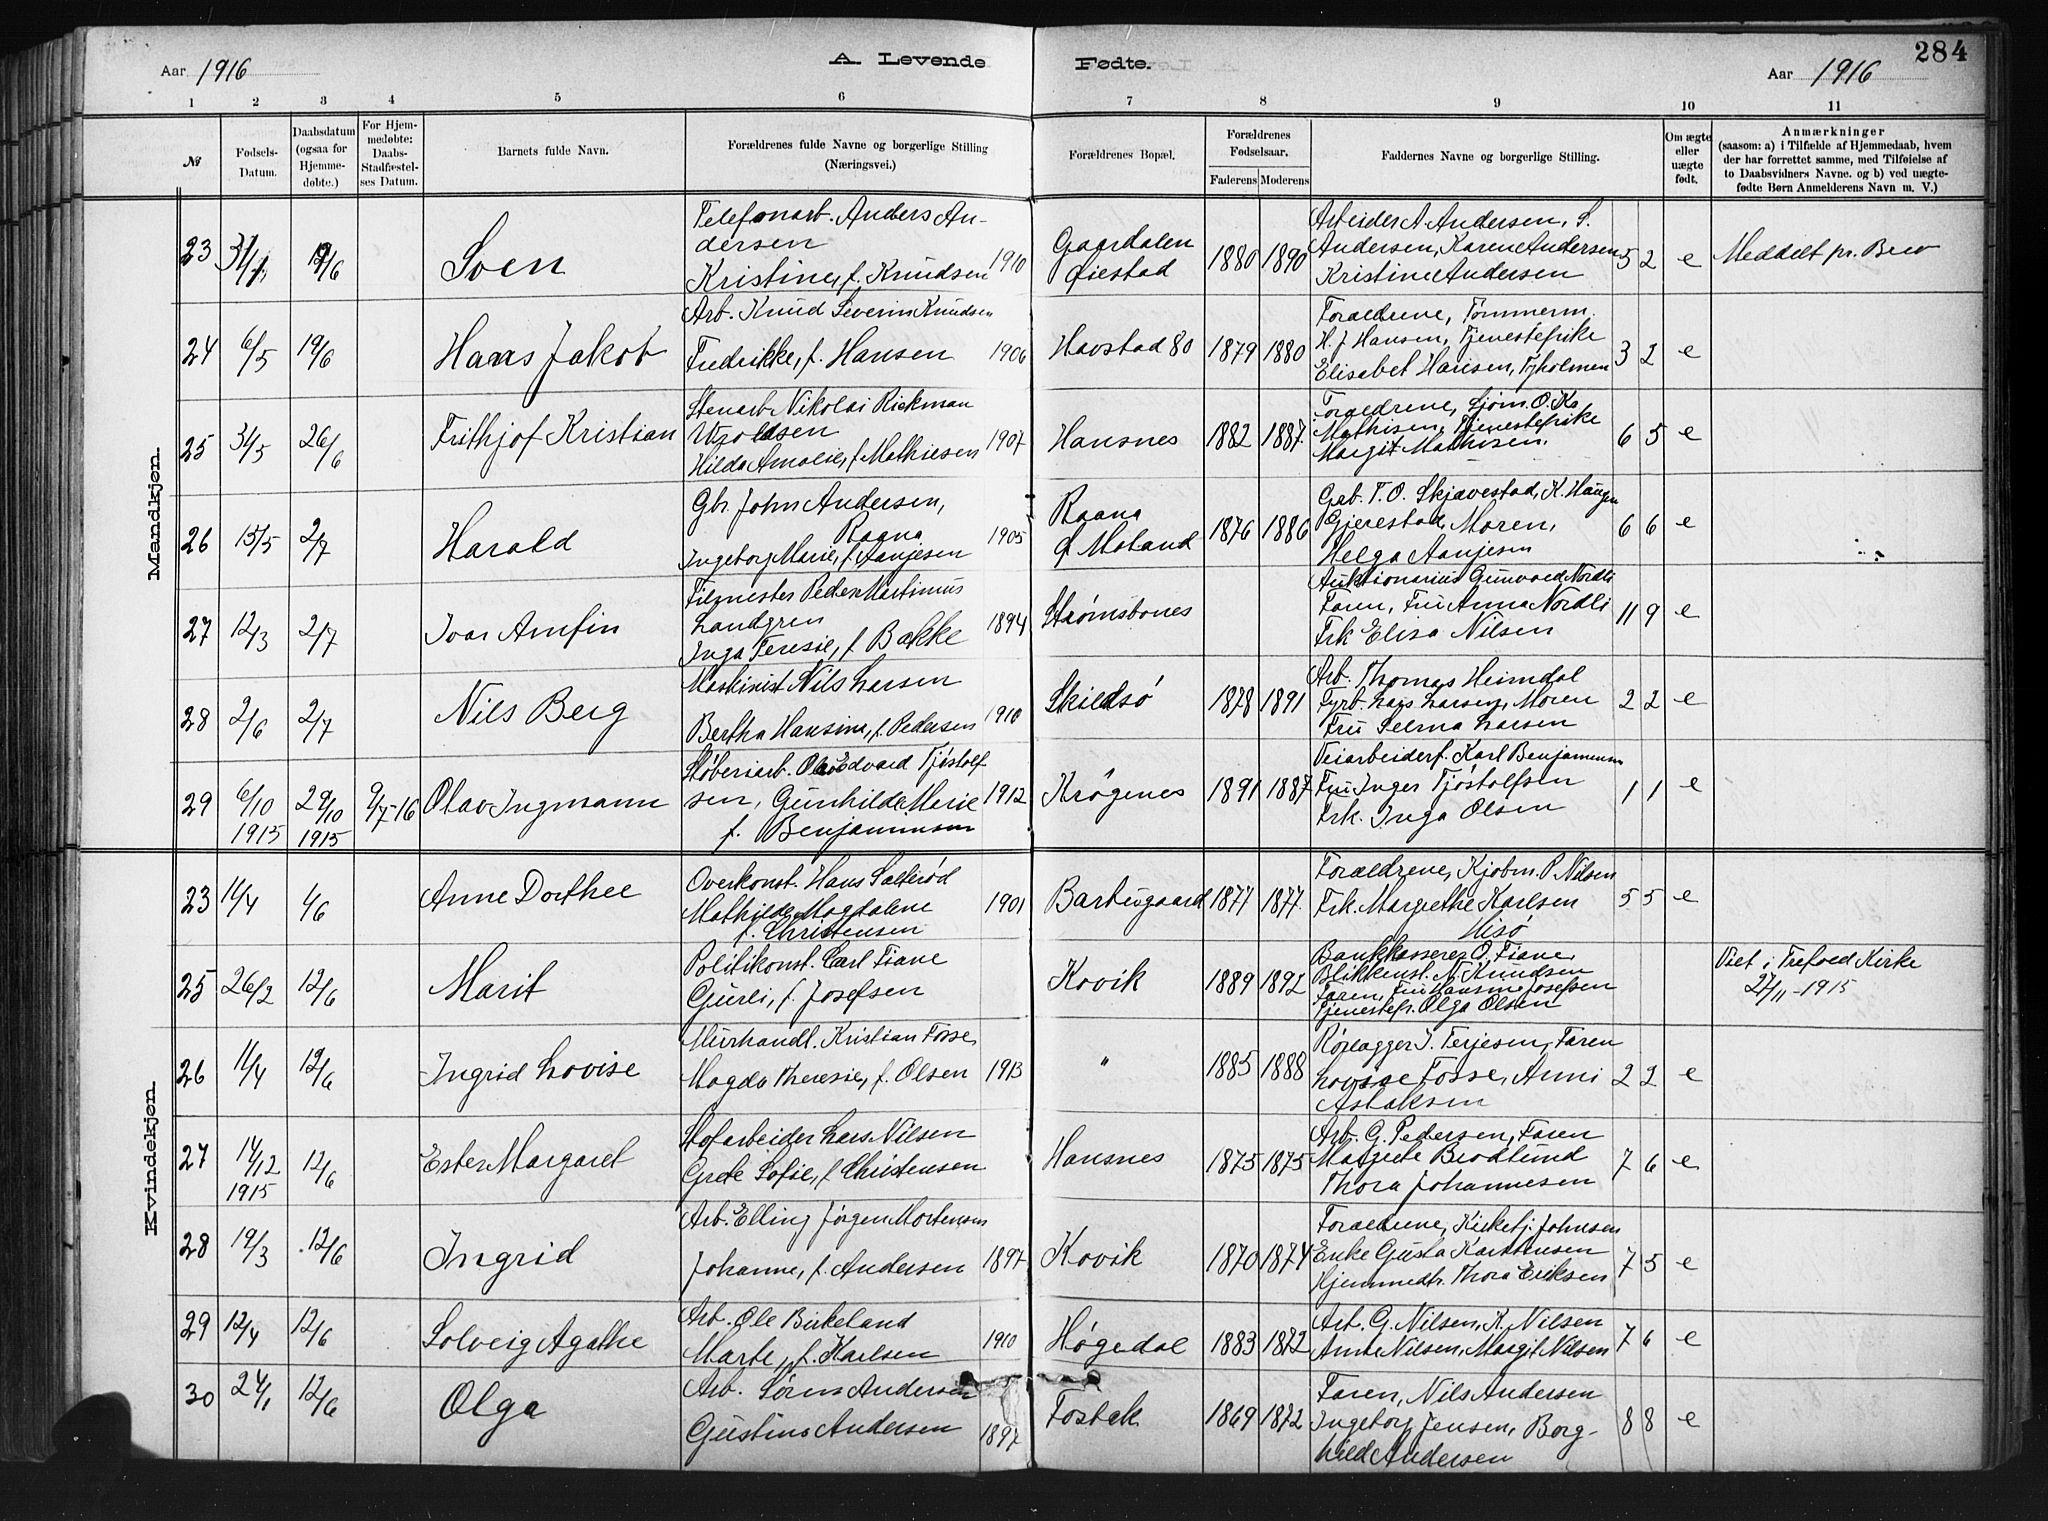 284
Aar 1916
A. Levende
Fødte.
Aar 1916
1 2 3 4 5 6
7 8 9 10 11
№
Fødsels-
Datum.
Daabsdatum
(ogsaa for
Hjemme-
døbte.)
For Hjem-
medøbte:
Daabs-
Stadfæstel-
ses Datum.
Barnets fulde Navn.
Forældrenes fulde Navne og borgerlige Stilling
(Næringsvei.)
Forældrenes Bopæl.
Forældrenes
Fødselsaar.
Faderens Moderens
Faddernes Navne og borgerlige Stilling.
Om ægte
eller
uægte
født.
Anmærkninger
(saasom: a) i Tilfælde af Hjemmedaab, hvem
der har forrettet samme, med Tilføielse af
to Daabsvidners Navne. og b) ved uægte-
fødte Børn Anmelderens Navn m. V.)
Mandkjøn.
23 12/6 Sven
Telefonarb. Anders An-
dersen
Kristine, f. Knudsen 1910
Gaardalen
Øiestad
1880 1890
Arbeider A. Andersen, S.
Andersen, Karen Andersen
Kristine Andersen
5 2 e
Meddelt pr. Brev
24 6/5 19/6 Hans Jakob
Arb. Knud Severin Knudsen
Fredrikke, f. Hansen 1906
Havstad 80
1879 1880
Forældrene, Tømmerm.
H. J. Hansen, Tjenestepike
Elisabet Hansen, Tyholmen
3 2 e
25 31/5 26/6 Frithjof Kristian
Stenarb. Nikolai Rickman
Hilda Amalie, f. Mathiesen 1907
Hansnes
1882 1887
Forældrene, Sjøm. O. Kr.
Mathisen, Tjenestepike
Margit Mathisen.
6 5 e
26 15/5 2/7 Harald
Gbr. John Andersen,
Raana
Ingeborg Marie, f. Aanjesen 1905
Raana
Ø Moland
1876 1886
Gab. T. O. Skjævestad, K. Haugen
Gjerestad, Moren,
Helga Aanjesen
6 6 e
27 12/3 2/7 Ivar Arnfin
Filemester Peder Martinius
Landgren
Inga Teresie, f. Bakke 1894
Strømsbones
Auktionarius Gunvald Nordli
Faren, Fru Anna Nordli
Frk Elisa Nilsen
11 9 e
28 2/6 2/7 Nils Berg
Maskinist Nils Larsen
Bertha Hansine, f. Pedersen 1910
Skilsø
1878 1891
Arb. Thomas Heimdal
Fyrb. Lars Larsen, Moren
Fru Selma Larsen
2 2 e
29 6/10 1915 29/10 1915 9/7-16 Olav Ingmann
Støberiarb. Olav Edvard Tjøstolf
sen, Gunhilde Marie 1912
f. Benjaminsen
Krøgenes
1891 1887
Veiarbeiderf. Karl Benjaminsen
Fru Inger Tjøstolfsen
Frk. Inga Olsen
1 1 e
Kvindekjøn.
23 11/4 4/6 Anne Dorthee
Overkonst. Hans Salterød
Mathilde Magdalene 1901
f. Christensen
Barbugaard
1877 1877
Forældrene, Kjøbm. P. Nilsen
Frk. Margrethe Karlsen
Hisø
5 5 e
25 26/2 12/6 Marit
Politikonst. Carl Fiane
Gurli, f. Josefsen
Kovik
1889 1892
Bankkasserer O. Fiane,
Blikkenst. N. Knudsen
Faren, Fru Hansine Josefsen
Tjenestep. Olga Olsen
Viet i Trefold. Kirke
27/11-1915
26 11/4 12/6 Ingrid Lovise
Murhandl. Kristian Fosse
Magda Theresie, f. Olsen 1913
"
1885 1888
Rørlægger T. Terjesen, Faren
Lovise Fosse, Anni
Aslaksen
2 2 e
27 14/12 1915 12/6 Ester Margaret
Stofarbeider Lars Nilsen
Grete Sofie, f. Christensen
Hansnes
1875 1875
Arb. G. Pedersen, Faren
Margrete Brodlund
Thora Johannesen
7 6 e
28 19/3 12/6 Ingrid
Arb. Elling Jørgen Mortensen
Johanne, f. Andersen 1897
Kovik
1870 1874
Forældrene, Kirketj. Johnsen
Enke Gusta Karstensen
Hjemmedtr. Thora Eriksen
7 5 e
29 12/4 12/6 Solveig Agathe
Arb. Ole Birkeland
Marte, f. Karlsen 1910
Høgedal
1883 1872
Arb. G. Nilsen, K. Nilsen
Anna Nilsen, Margit Nilsen
7 6 e
30 24/1 12/6 Olga
Arb. Søren Andersen
Gustine Andersen 1897
Fosbæk
1869 1872
Faren, Nils Andersen
Ingeborg Jensen, Borg-
hild Andersen
8 8 e